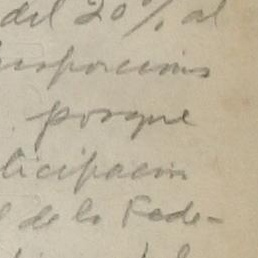 del 20% al
proporciones
porque
ticipacion
l de la Fede-